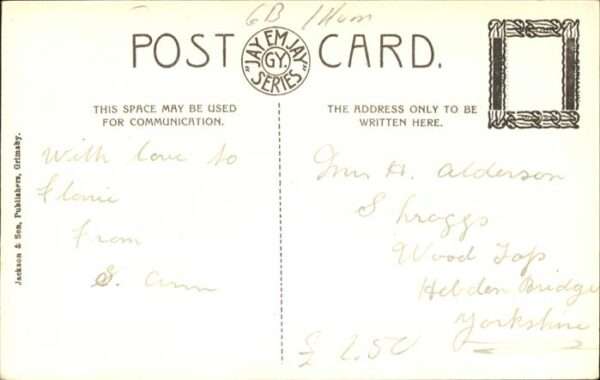 6B
POST CARD.
"JAY EM JAY" GY. SERIES
THIS SPACE MAY BE USED
FOR COMMUNICATION.
THE ADDRESS ONLY TO BE
WRITTEN HERE.
Jackson & Son, Publishers, Grimsby.
With love to
from
S. Ann
Mrs H. Alderson
Wood Top
Hebden Bridge
Yorkshire
£ 2.50